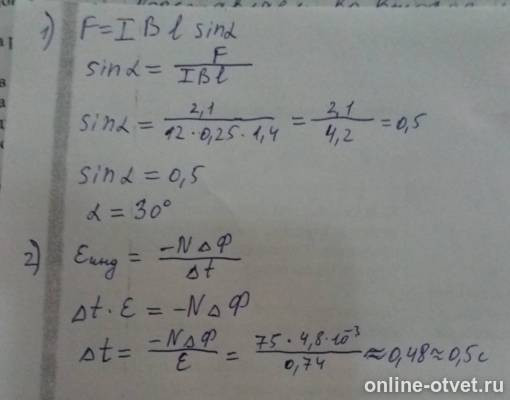 1) F = I B l sinα
sinα = F / I B l
sinα = 2,1 / 12 · 0,25 · 1,4 = 2,1 / 4,2 = 0,5
sinα = 0,5
α = 30°
2) Ɛинд = -N Δ Ф / Δt
Δt · Ɛ = -N Δ Ф
Δt = -N Δ Ф / Ɛ = 75 · 4,8 · 10⁻³ / 0,74 ≈ 0,48 ≈ 0,5 с
online-otvet.ru